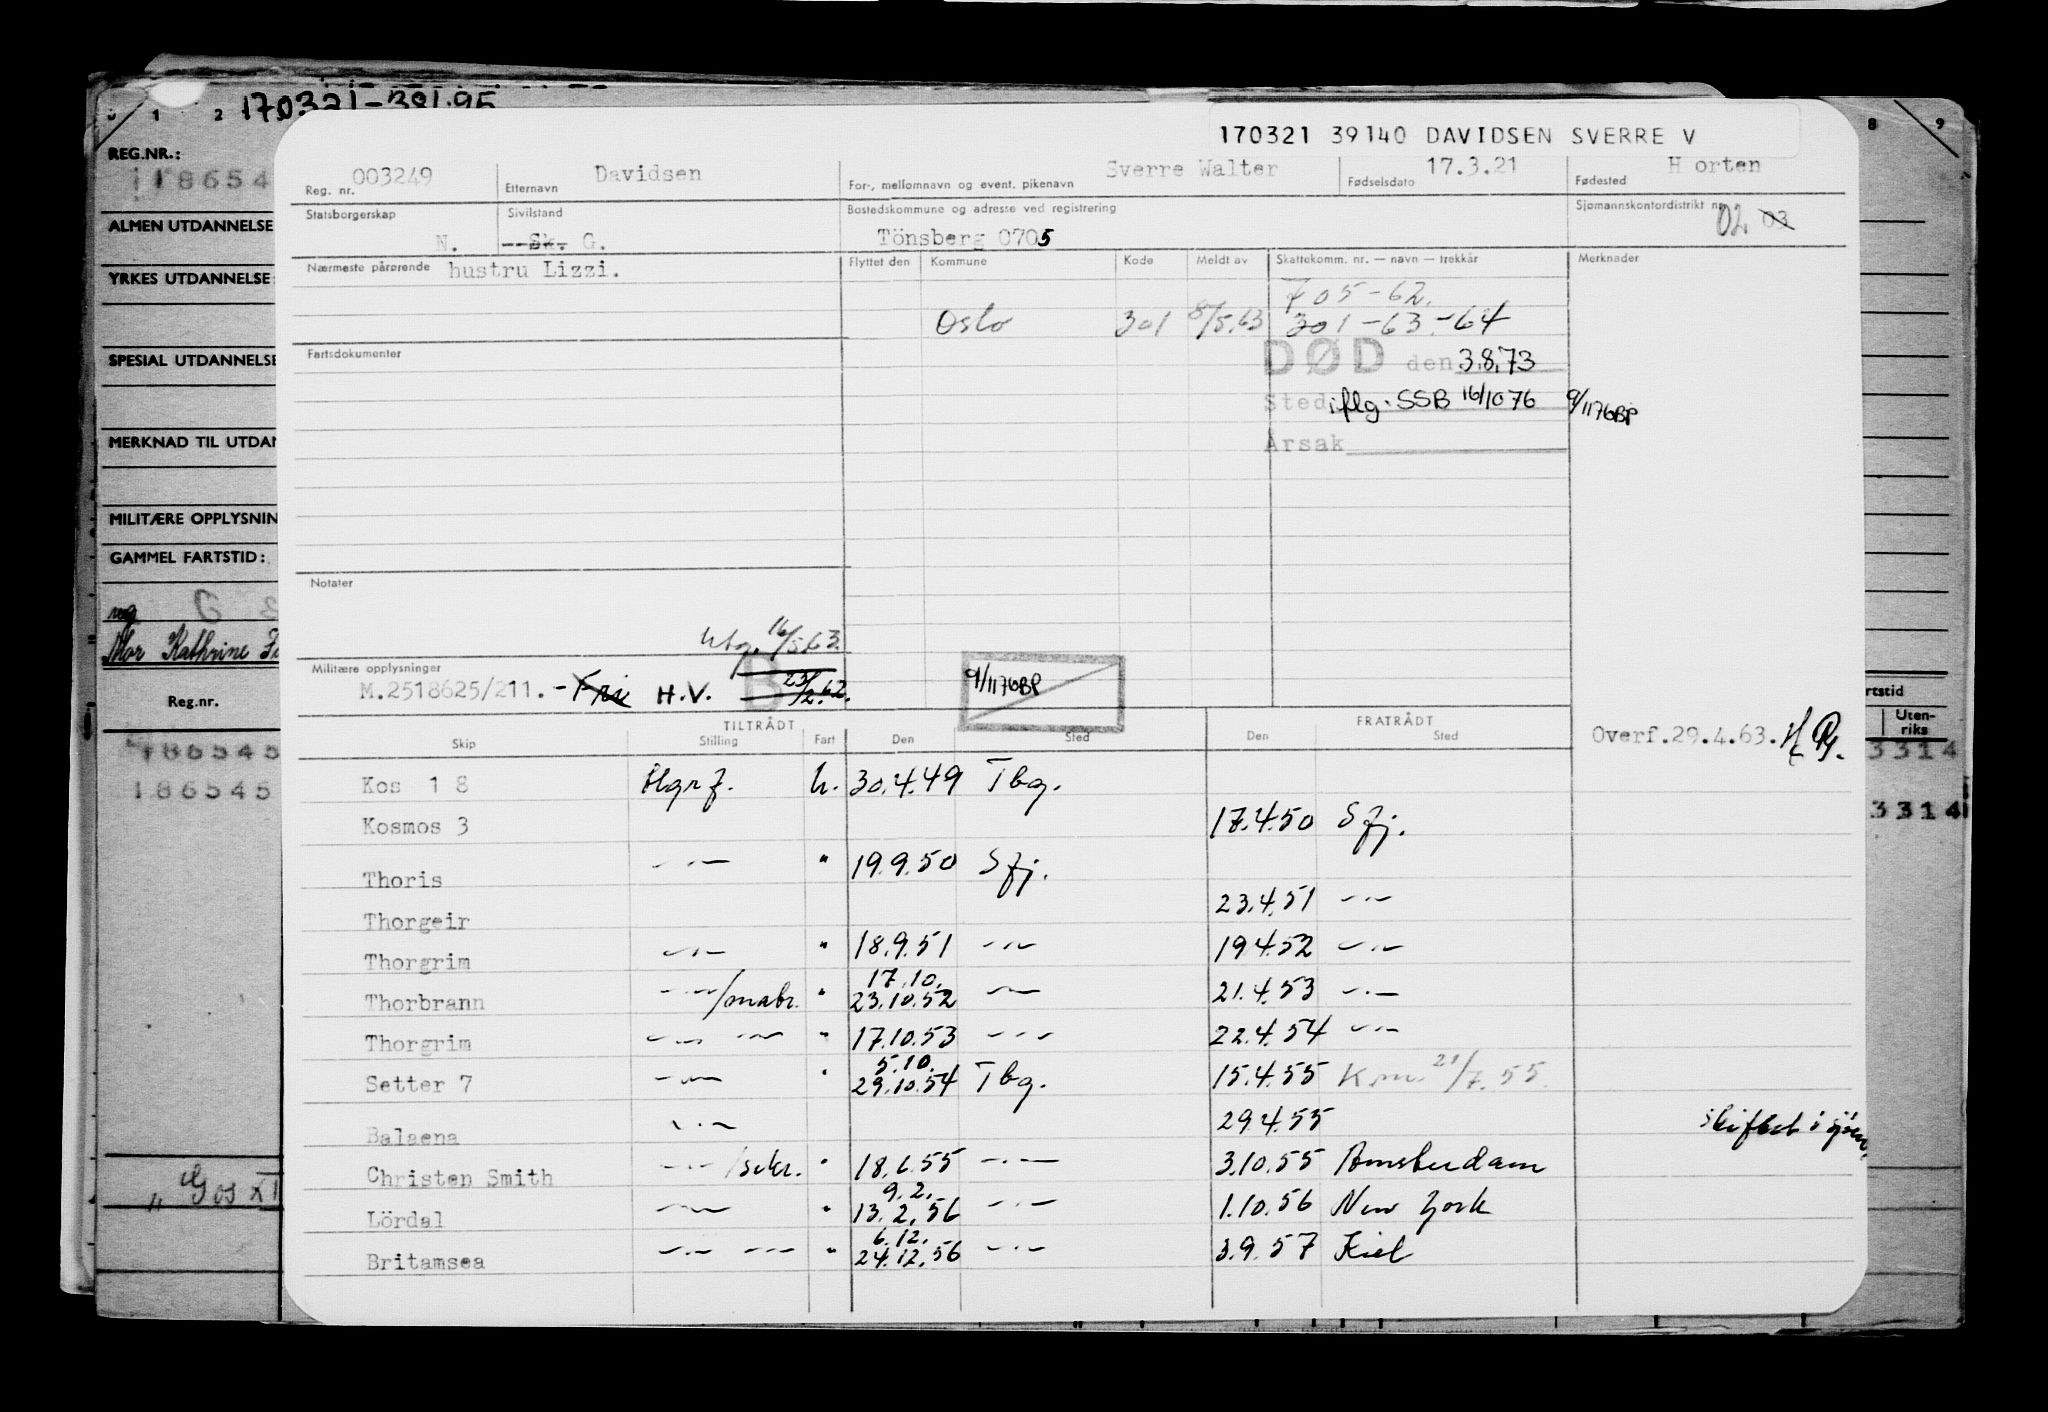 170321-391.95
0 1 2
8 9
REG.NR.:
118654
ALMEN UTDANNELSE
YRKES UTDANNELSE:
SPESIAL UTDANNELSE
MERKNAD TIL UTDAN
MILITÆRE OPPLYSNIN
GAMMEL FARTSTID:
Mor Kathrine
Reg.nr.
186545
186545
rtstid
Uten-
riks
3314
3314
170321 39140 DAVIDSEN SVERRE V
Reg. nr. 003249 Etternavn Davidsen For-, mellomnavn og event. pikenavn Sverre Walter Fødselsdato 17.3.21 Fødested H orten
Statsborgerskap N. Sivilstand --Sk. G. Bostedskommune og adresse ved registrering Tönsberg 0705 Sjømannskontordistrikt nr. 02 03
Nærmeste pårørende hustru Lizzi. Flyttet den Kommune Kode Meldt av Skattekomm. nr. — navn — trekkår Merknader
705-62.
Oslo 301 8/5.63 301-63-64
Fartsdokumenter
DØD den 3.8.73
Sted iflg. SSB 16/10 76 9/11 76 BP
Årsak
Notater
utg. 16/5.63.
Militære opplysninger
M.2518625/211. - Fri H.V. B 25/2.62.
9/11 76 BP
TILTRÅDT FRATRÅDT
Skip Stilling Fart Den Sted Den Sted
Overf.29.4.63.
Kos 1 8 Hgrf. U. 30.4.49 Tbg.
Kosmos 3 17.4.50 Sfj.
Thoris -"- " 19.9.50 Sfj.
Thorgeir 23.4.51 -"-
Thorgrim -"- " 18.9.51 -"- 19.4.52 -"-
17.10.
Thorbrann -"-/matr. " 23.10.52 -"- 21.4.53 -"-
Thorgrim -"- -"- " 17.10.53 -"- 22.4.54 -"-
5.10.
Setter 7 -"- " 29.10.54 Tbg. 15.4.55 Kom. 21/7.55.
Balaena -"- 29.4.55 skiftet i sjöen
Christen Smith -"-/sekr. " 18.6.55 -"- 3.10.55 Amsterdam
9.2.
Lördal -"- " 13.2.56 -"- 1.10.56 New York
6.12.
Britamsea -"- -"- " 24.12.56 -"- 3.9.57 Kiel